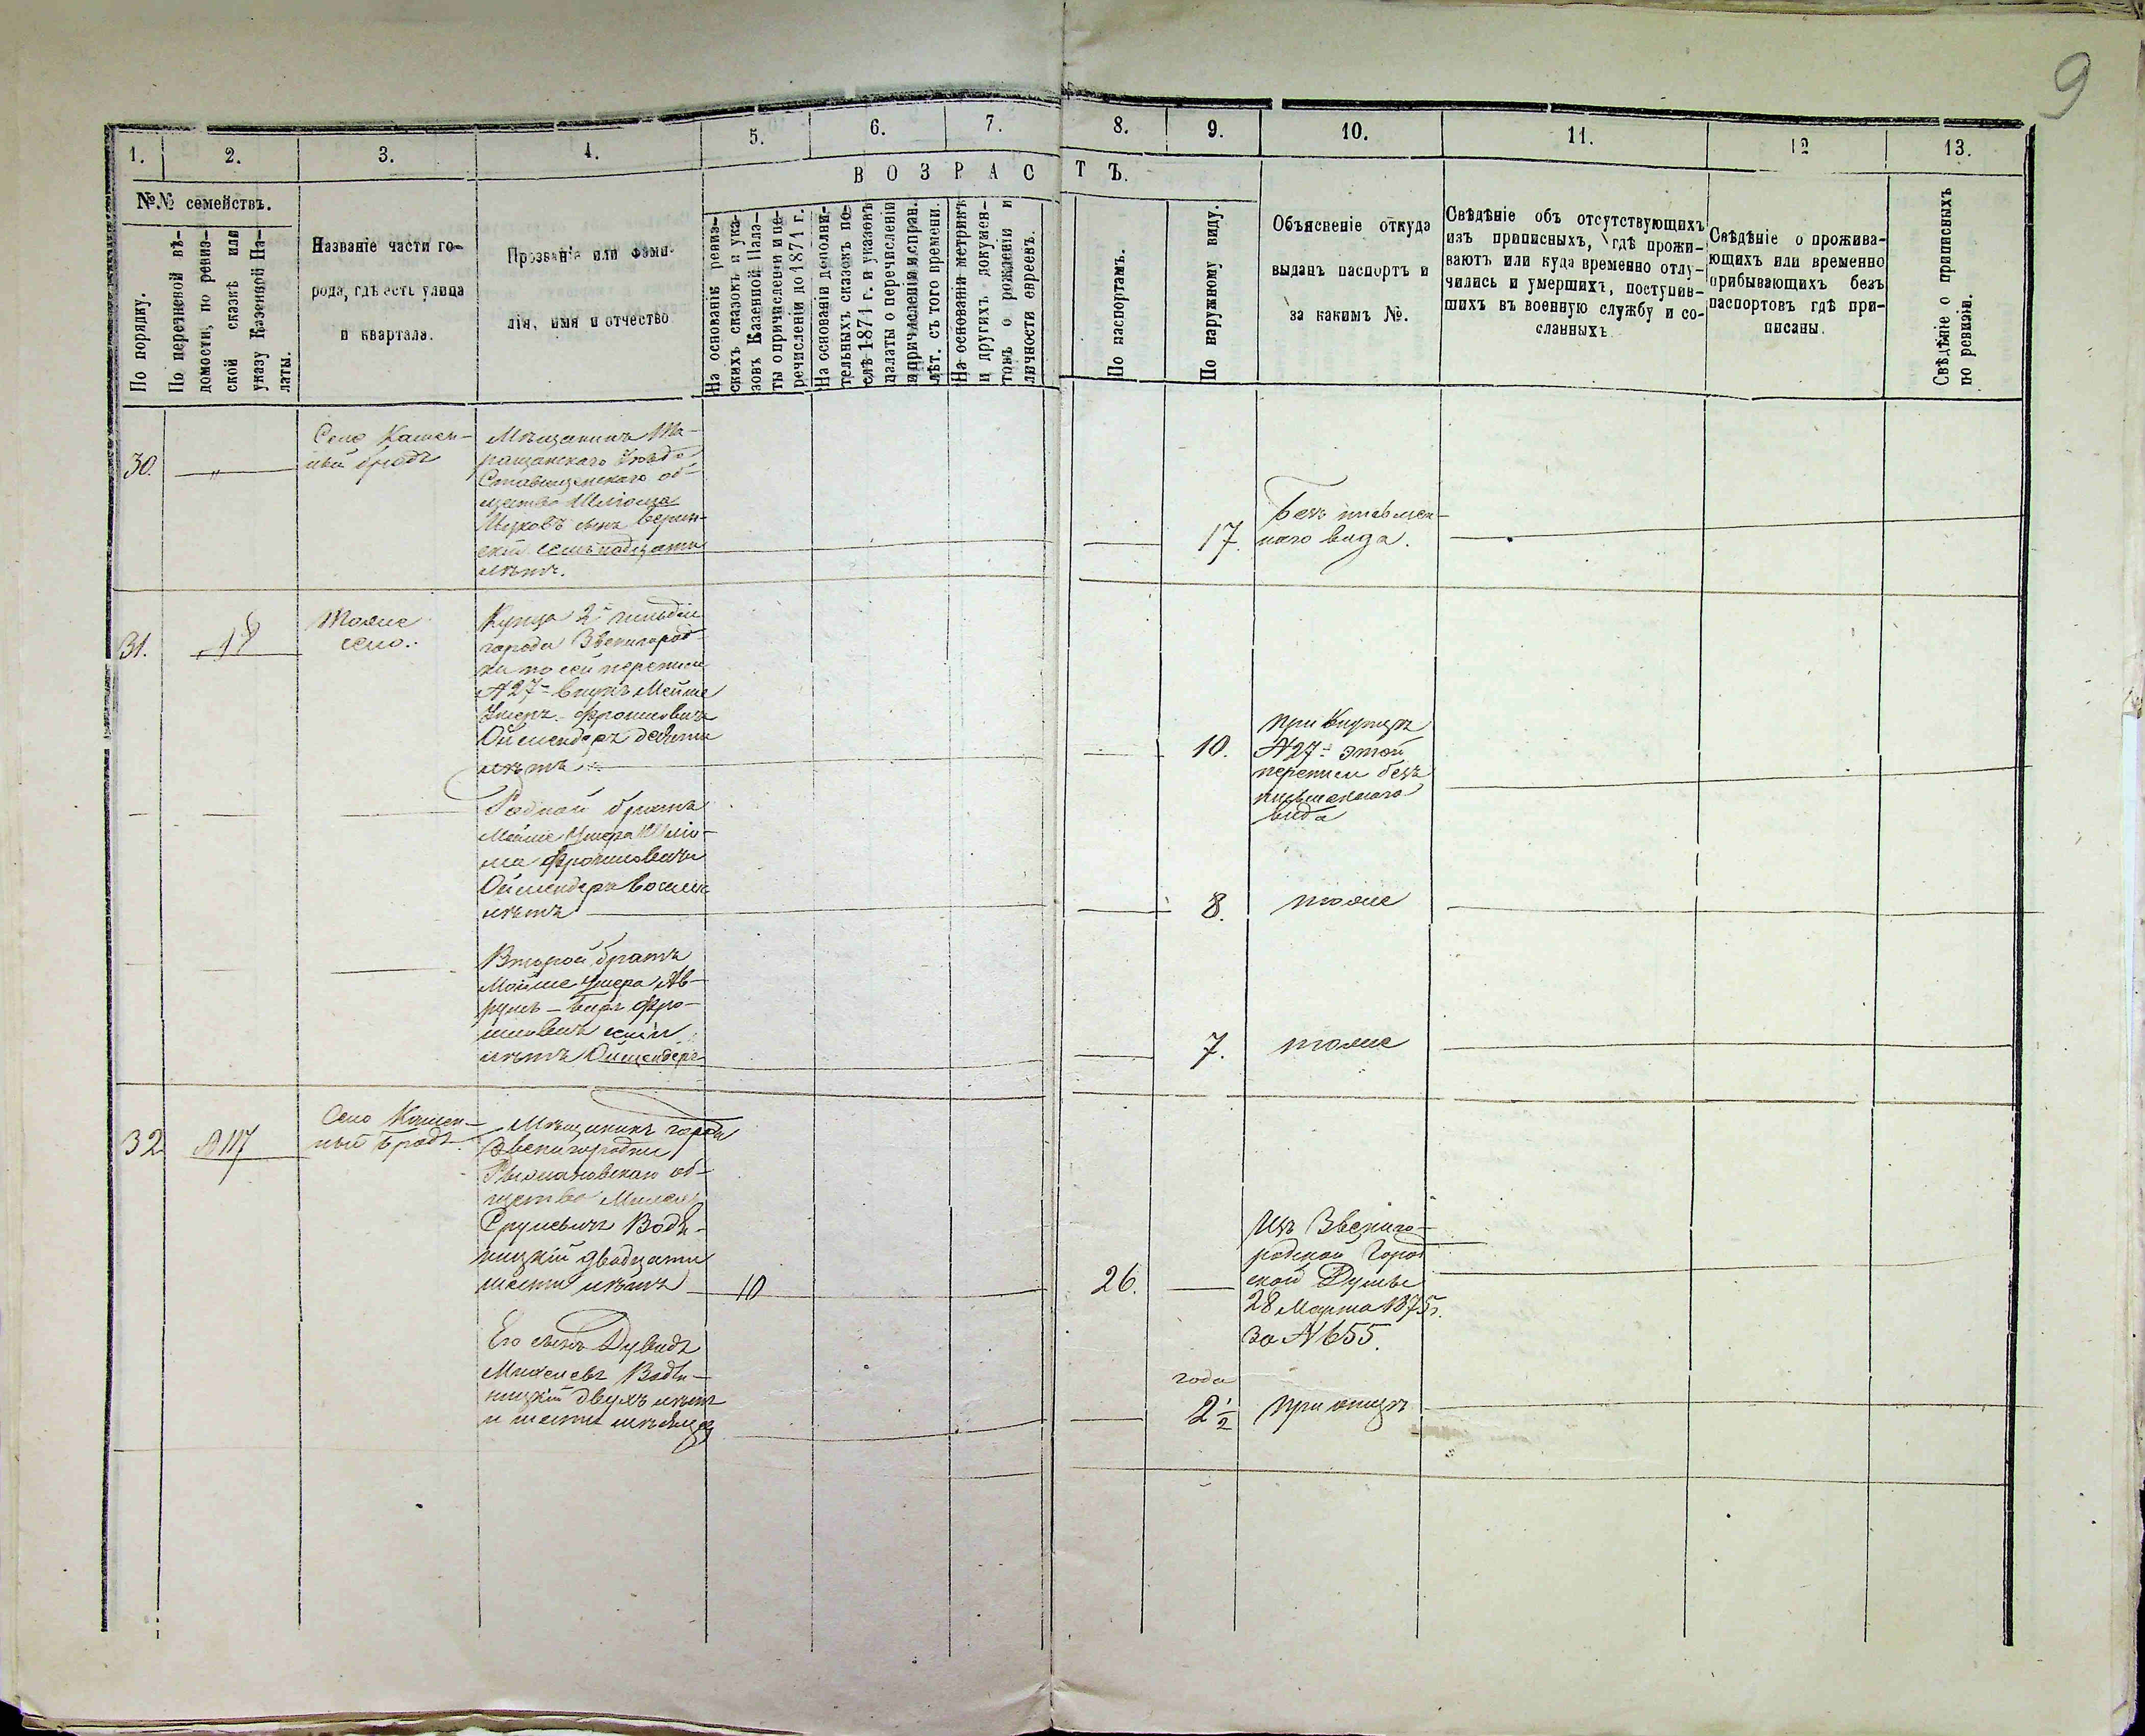 9
1.
2.
3.
4.
5.
6.
7.
8.
9.
10.
11.
12
13.
ВОЗРАСТЪ.
№№ семействъ.
По порядку.
По перечневой вѣ-
домости, по ревиз-
ской сказкѣ или
указу Казенной Па-
латы.
Названіе части го-
рода, гдѣ есть улица
и квартала.
Прозваніе или фами-
лія, имя и отчество
На основаніи ревиз-
скихъ сказокъ и ука-
зовъ Казенной Пала-
ты о причисленіи и пе-
речисленіи до 1871 г.
На основаніи дополни-
тельныхъ сказокъ по-
слѣ 1871 г. и указовъ
палаты о перечисленіи
и причисленіи и исправ.
лѣт. съ того времени.
На основаніи метрикъ
и другихъ докумен-
товъ о рожденіи и
личности евреевъ.
По паспортамъ.
По наружному виду.
Объясненіе откуда
выданъ паспортъ и
за какимъ №.
Свѣдѣніе объ отсутствующихъ
изъ приписныхъ, гдѣ прожи-
ваютъ или куда временно отлу-
чились и умершихъ, поступив-
шихъ въ военную службу и со-
сланныхъ.
Свѣдѣніе о прожива-
ющихъ или временно
прибывающихъ безъ
паспортовъ гдѣ при-
писаны.
Свѣдѣніе о приписныхъ
по ревизіи.
30.
"
Село Камен-
ный бродъ
Мѣщанинъ Та-
ращанскаго Уѣзда
Ставищенскаго об-
щества Шлiома
Ицковъ сынъ
семнадцати
лѣтъ.
17.
Безъ письмен-
наго вида.
31.
Тоже
село.
Купца 2й гильдіи
города Звенигород-
ки по сей переписи
№27й внукъ Мойше
Ушеръ Фроимовичъ
Ойшендеръ десяти
лѣтъ
10.
при Купцѣ
№27й этой
переписи безъ
письменнаго
вида
Родной братъ
Мойше Ушера Шлiо-
ма Фроимовичъ
Ойшендеръ восьми
лѣтъ
8.
тоже
Второй братъ
Мойше Ушера Ав-
румъ - Беръ Фро-
имовичъ семи
лѣтъ Ойшендеръ
7.
тоже
32
№117
Село Камен-
ный Бродъ.
Мѣщанинъ города
Звенигородки
Рыжановскаго об-
щества Михель
Срулевичъ Водя-
ницкій двадцати
шести лѣтъ
10
26.
Изъ Звениго-
родской Город
ской Думы
28 Марта 1875г.
за №655.
Его сынъ Дувидъ
Михелевъ Водя-
ницкій двухъ лѣтъ
и шести мѣсяцевъ
года
2½
при отцѣ